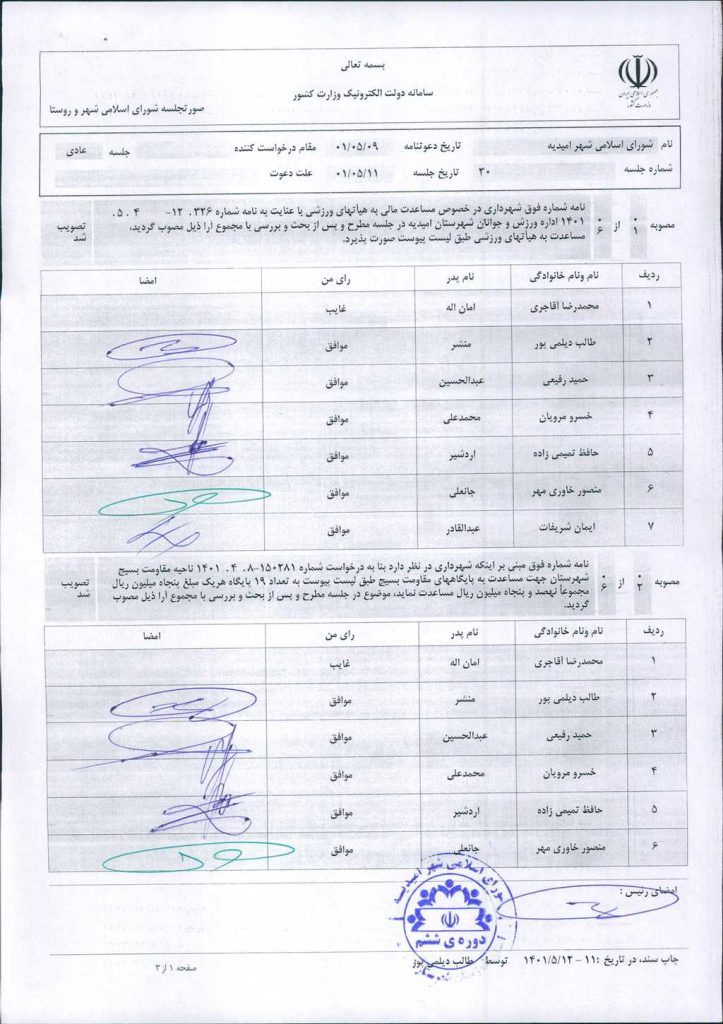 بسمه تعالی
سامانه دولت الکترونیک وزارت کشور
صورتجلسه شورای اسلامی شهر و روستا
جمهوری اسلامی ایران
وزارت کشور
نام شورای اسلامی شهر امیدیه تاریخ دعوتنامه ۰۱/۰۵/۰۹ مقام درخواست کننده جلسه عادی
شماره جلسه ۳۰ تاریخ جلسه ۰۱/۰۵/۱۱ علت دعوت
مصوبه ۰۱ از ۰۶ نامه شماره فوق شهرداری در خصوص مساعدت مالی به هیأتهای ورزشی با عنایت به نامه شماره ۳۲۶. ۱۲- ۴. ۵.
۱۴۰۱ اداره ورزش و جوانان شهرستان امیدیه در جلسه مطرح و پس از بحث و بررسی با مجموع آرا ذیل مصوب گردید،
مساعدت به هیأتهای ورزشی طبق لیست پیوست صورت پذیرد.
تصویب شد
ردیف نام ونام خانوادگی نام پدر رای من امضا
۱ محمدرضا آقاجری امان اله غایب
۲ طالب دیلمی پور منشر موافق
۳ حمید رفیعی عبدالحسین موافق
۴ خسرو مرویان محمدعلی موافق
۵ حافظ تمیمی زاده اردشیر موافق
۶ منصور خاوری مهر جانعلی موافق
۷ ایمان شریفات عبدالقادر موافق
مصوبه ۰۲ از ۰۶ نامه شماره فوق مبنی بر اینکه شهرداری در نظر دارد بنا به درخواست شماره ۱۵۰۲۸۱-۸. ۴. ۱۴۰۱ ناحیه مقاومت بسیج
شهرستان جهت مساعدت به پایگاههای مقاومت بسیج طبق لیست پیوست به تعداد ۱۹ پایگاه هریک مبلغ پنجاه میلیون ریال
مجموعاً نهصد و پنجاه میلیون ریال مساعدت نماید، موضوع در جلسه مطرح و پس از بحث و بررسی با مجموع آرا ذیل مصوب
گردید.
تصویب شد
ردیف نام ونام خانوادگی نام پدر رای من امضا
۱ محمدرضا آقاجری امان اله غایب
۲ طالب دیلمی پور منشر موافق
۳ حمید رفیعی عبدالحسین موافق
۴ خسرو مرویان محمدعلی موافق
۵ حافظ تمیمی زاده اردشیر موافق
۶ منصور خاوری مهر جانعلی موافق
امضای رئیس :
شورای اسلامی شهر امیدیه
دوره ی ششم
چاپ سند، در تاریخ :۱۱ - ۱۴۰۱/۵/۱۲ توسط: طالب دیلمی پور
صفحه ۱ از ۳